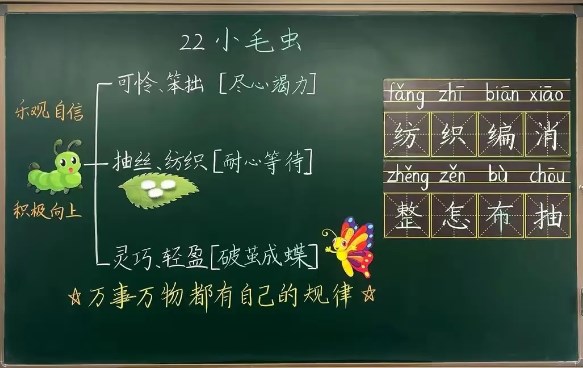 22 小毛虫
可怜、笨拙 [尽心竭力]
乐观自信
抽丝、纺织 [耐心等待]
积极向上
灵巧、轻盈 [破茧成蝶]
☆万事万物都有自己的规律☆
fǎng zhī biān xiāo
纺 织 编 消
zhěng zěn bù chōu
整 怎 布 抽